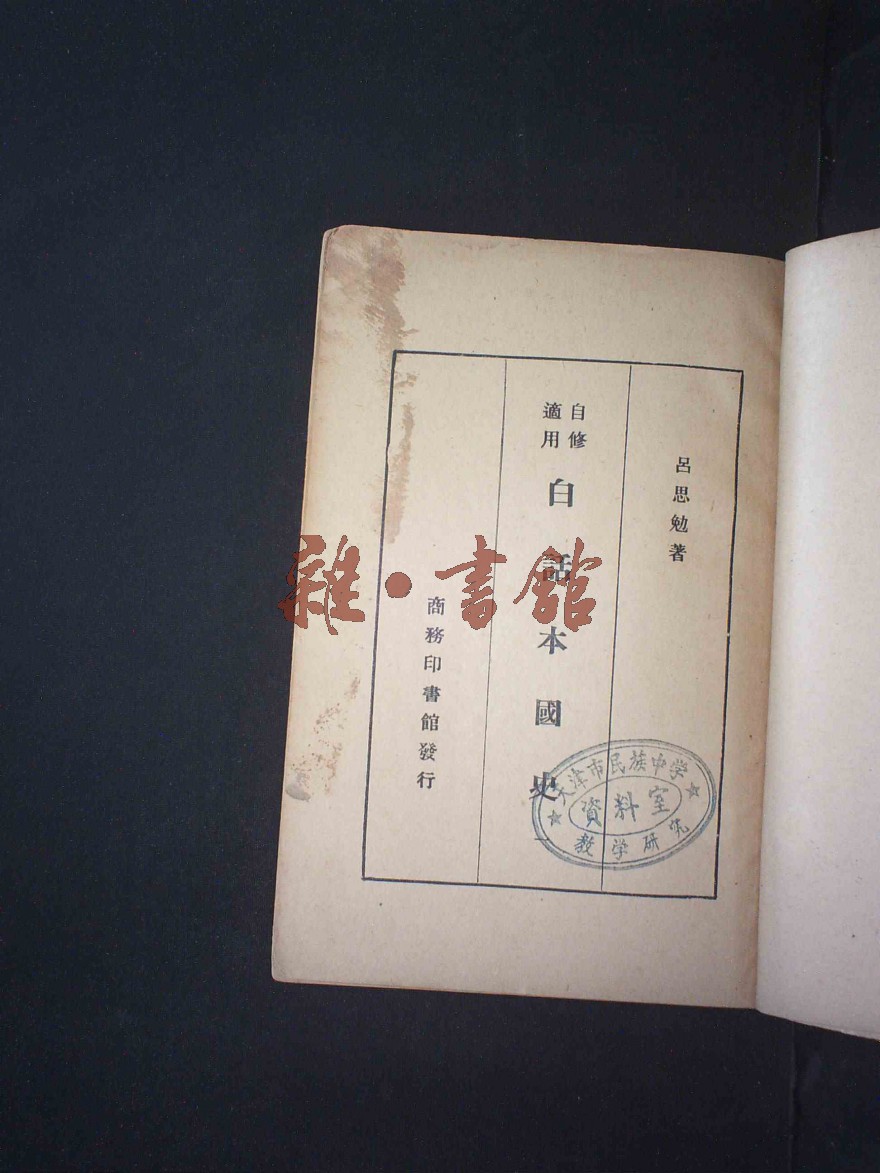 呂思勉著
自修
適用
白話本國史
一
商務印書館發行
天津市民族中学
資料室
教学研究
雜·書館